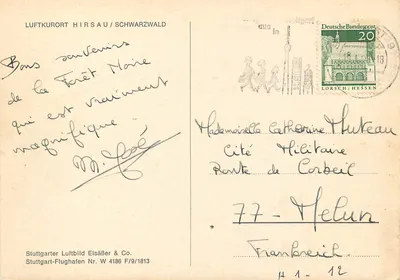 LUFTKURORT HIRSAU / SCHWARZWALD
Bons souvenirs
de la Forêt Noire
qui est vraiment
magnifique.
Deutsche Bundespost
20
LORSCH / HESSEN
Mademoiselle Catherine Muteau
Cité Militaire
Route de Corbeil
77 - Melun
Frankreich
A1 - 12
Stuttgarter Luftbild Elsäßer & Co.
Stuttgart-Flughafen Nr. W 4186 F/9/1813